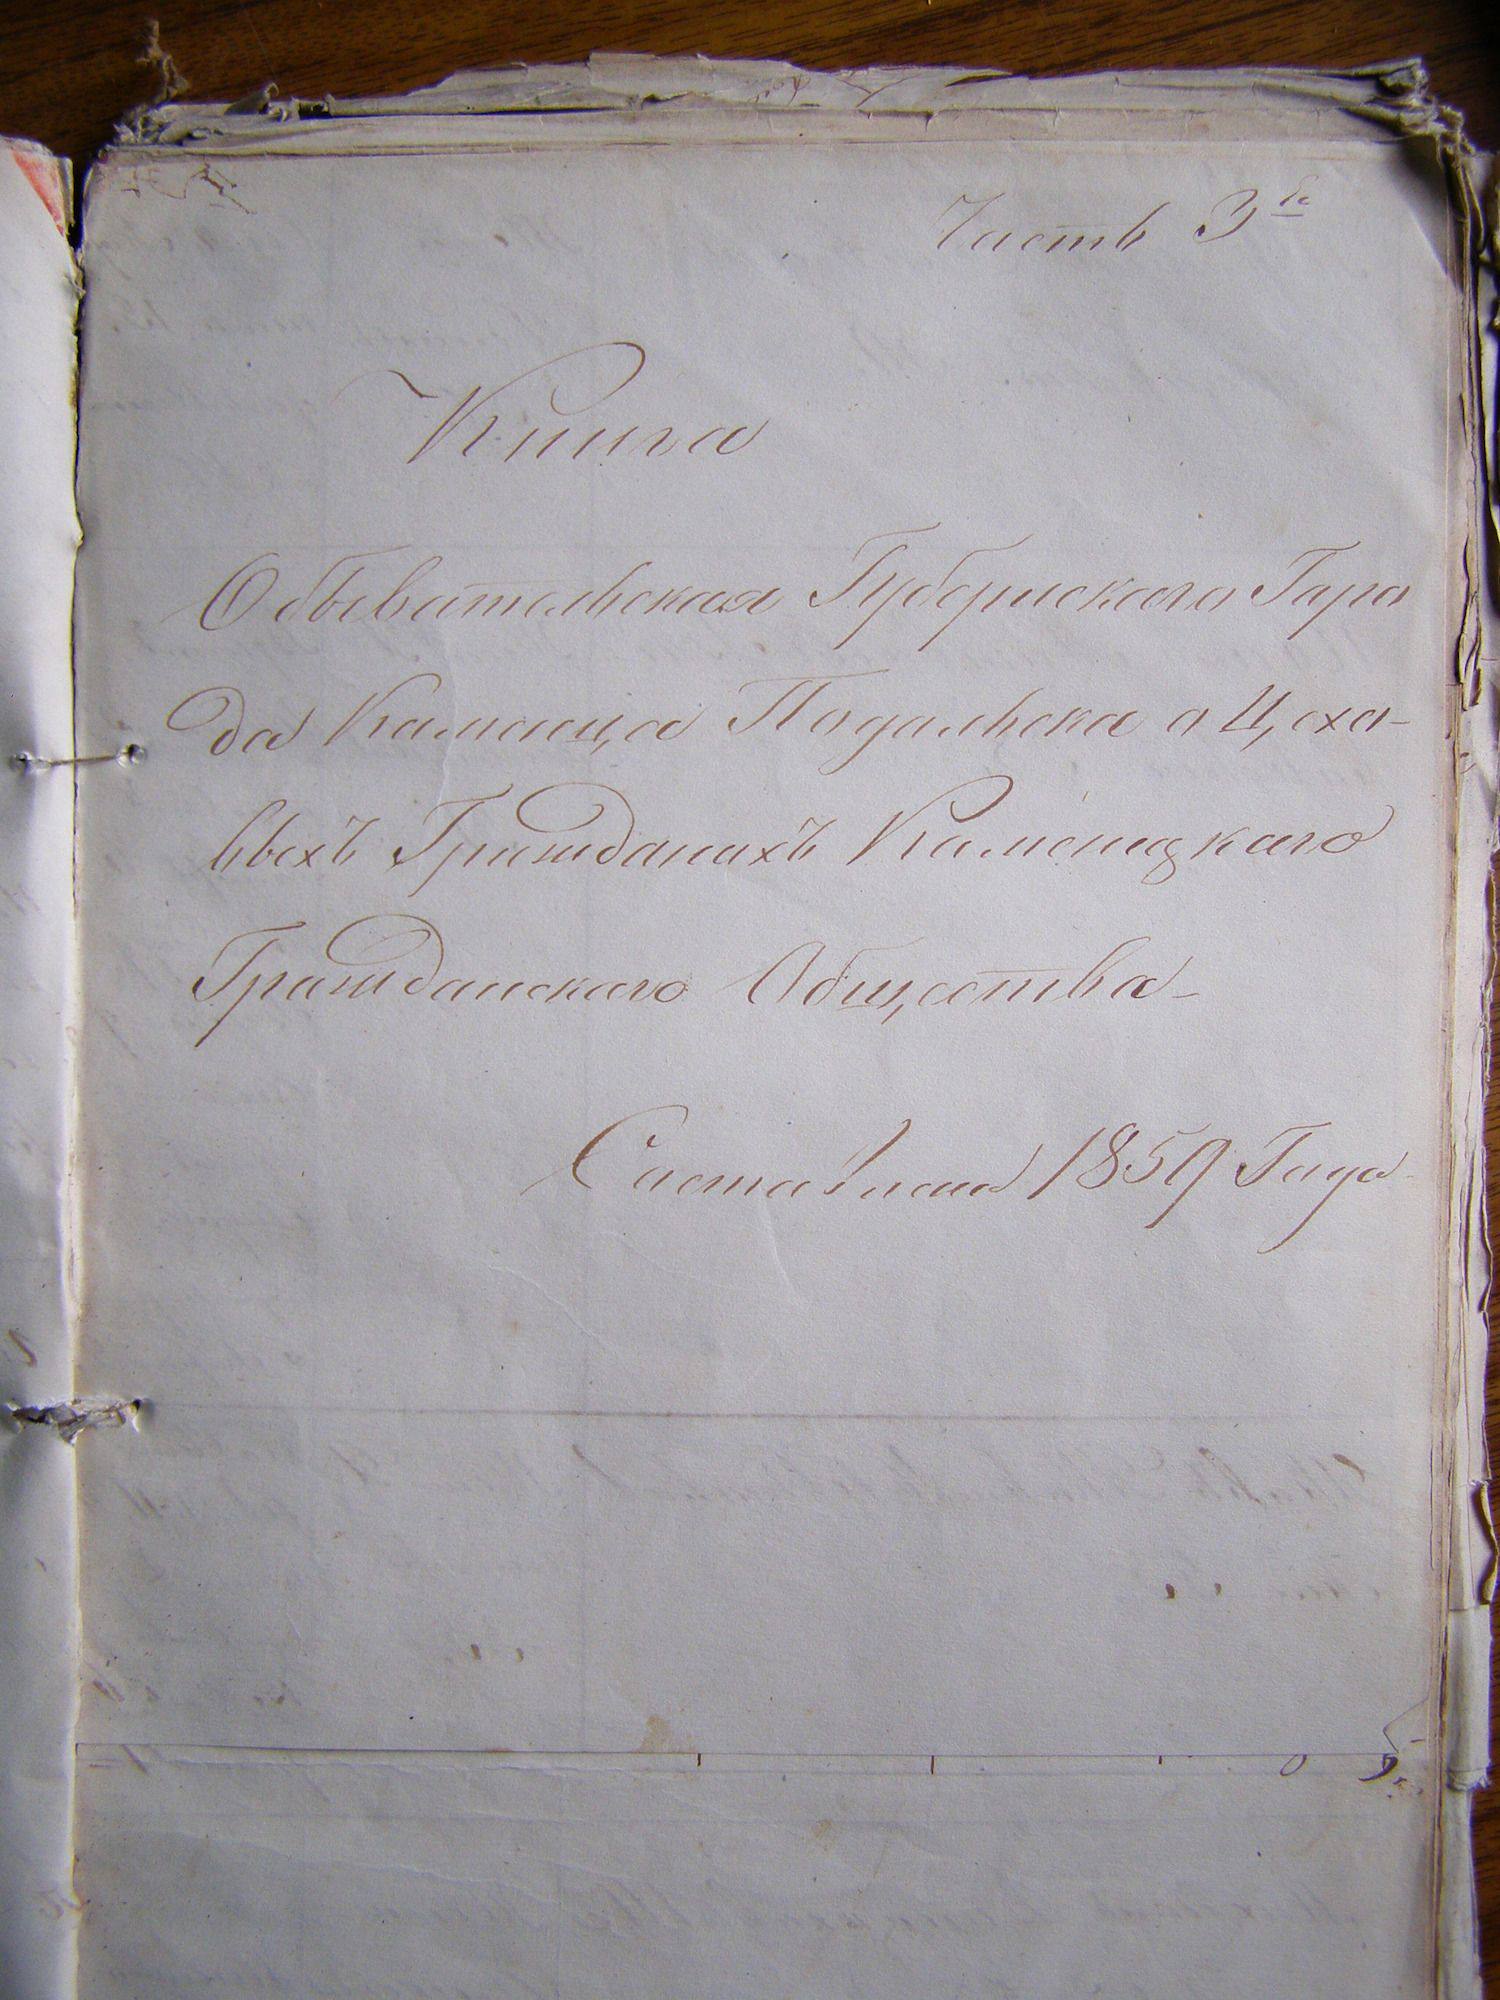 Часть 3я
Книга
Обывательская Губернского Горо
да Каменца Подольска о Цехо-
выхъ Гражданахъ Каменецкого
Гражданского Общества
Составлена 1859 Года